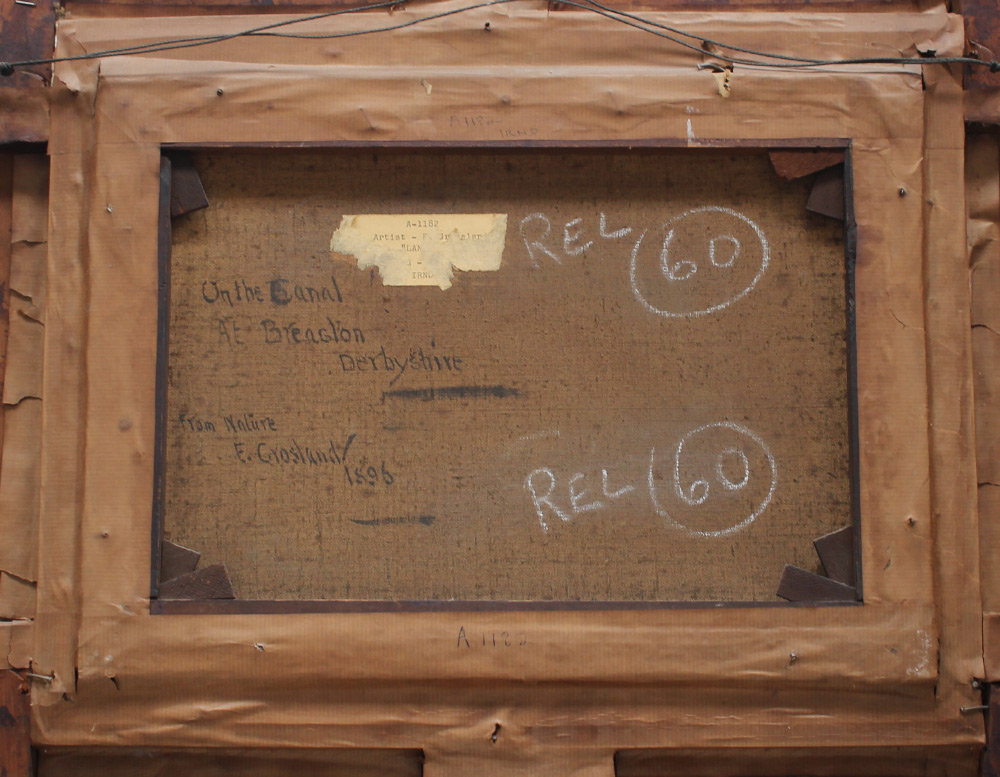 A 1182
IRND
A-1182
Artist - F.
"LAN
J -
IRND
REL 60
On the Canal
At Breaston
Derbyshire
From Nature
E. Crosland
1896
REL 60
A 1182